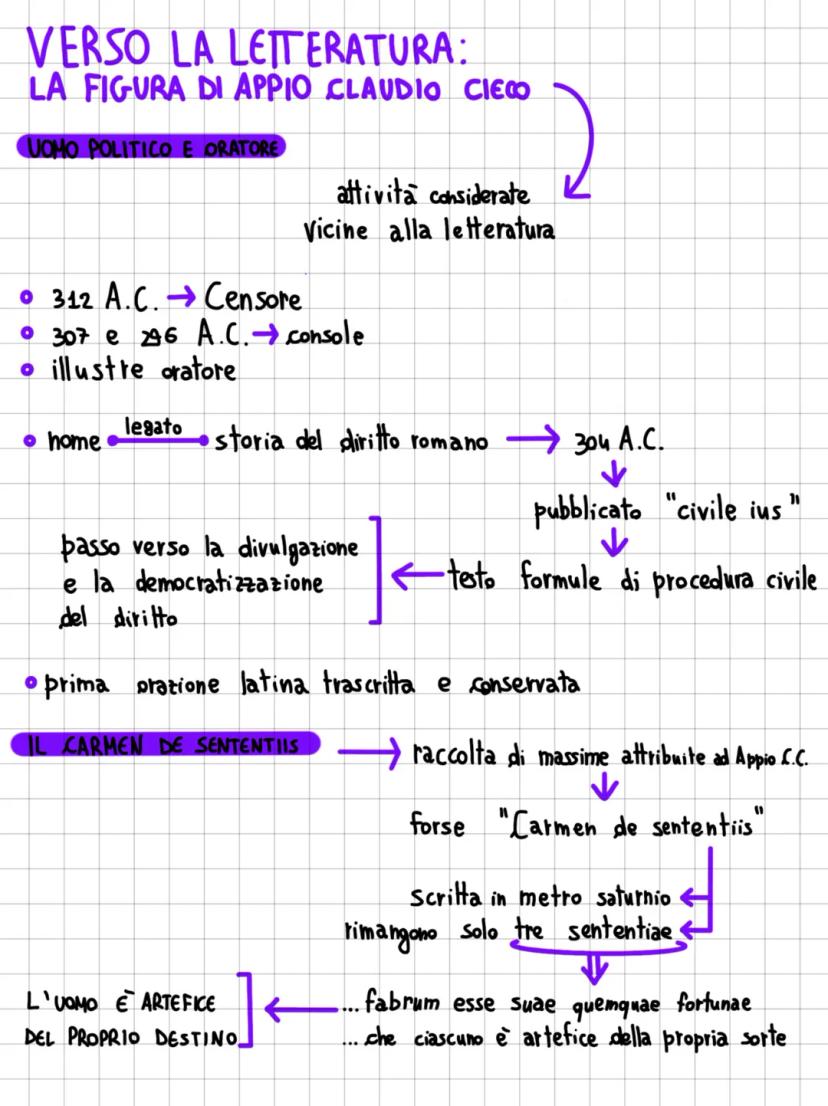 VERSO LA LETTERATURA:
LA FIGURA DI APPIO CLAUDIO CIECO
UOMO POLITICO E ORATORE
attività considerate
vicine alla letteratura
312 A.C. → Censore
307 e 296 A.C. → console
illustre oratore
nome legato storia del diritto romano → 304 A.C.
pubblicato "civile ius"
passo verso la divulgazione
e la democratizzazione
del diritto
testo formule di procedura civile
prima orazione latina trascritta e conservata
IL CARMEN DE SENTENTIIS → raccolta di massime attribuite ad Appio C.C.
forse "Carmen de sententiis"
scritta in metro saturnio
rimangono solo tre sententiae
L'UOMO È ARTEFICE
DEL PROPRIO DESTINO
... fabrum esse suae quemquae fortunae
... che ciascuno è artefice della propria sorte